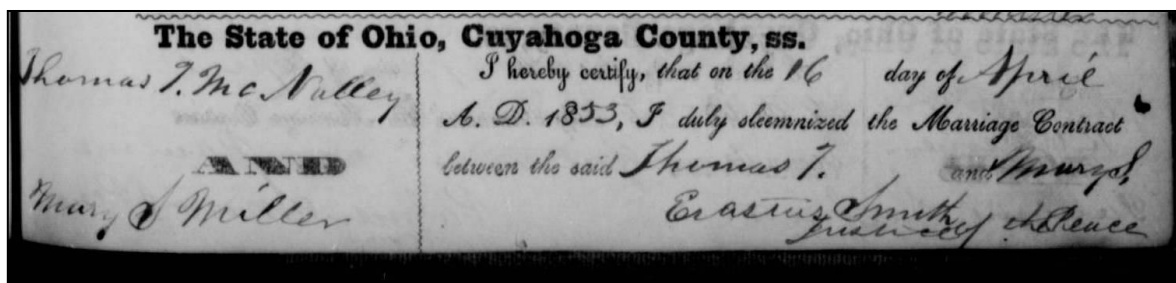 The State of Ohio, Cuyahoga County, ss.
Thomas T. McNalley
I hereby certify, that on the 16 day of April
A. D. 1853, I duly sleemnized the Marriage Contract
AND
between the said Thomas T. and Mary S.
Mary S Miller
Erastus Smith
Justice of the Peace